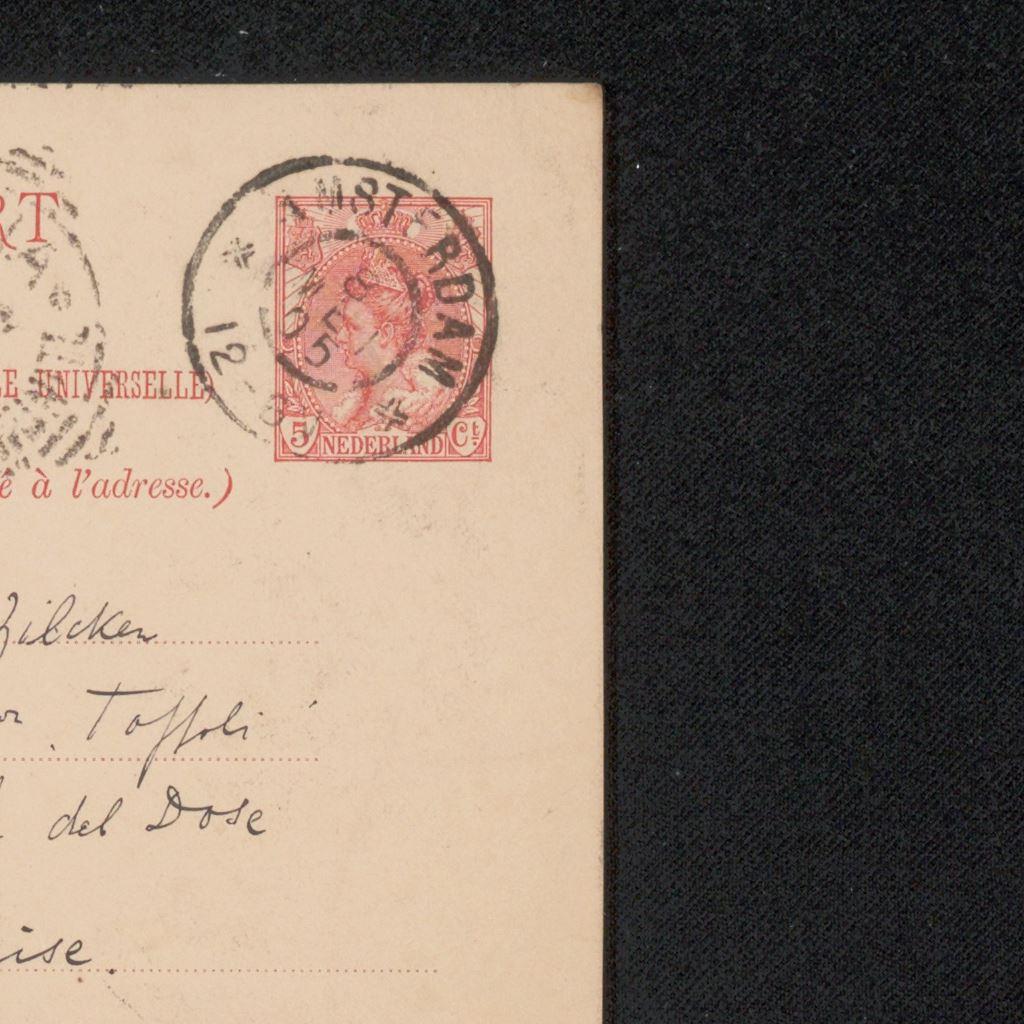 RT
AMSTERDAM
5 NEDERLAND Ct
UNIVERSELLE)
à l'adresse.)
Zilcken
Toffoli
del Dose
ise.